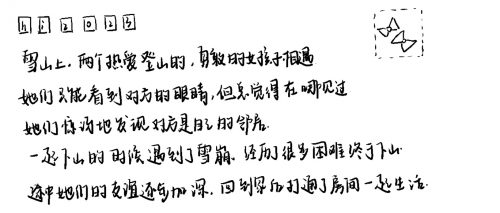 hi 2023
雪山上，两个热爱登山的，勇敢的女孩子相遇
她们只能看到对方的眼睛，但总觉得在哪见过
她们惊讶地发现对方是自己的邻居.
一起下山的时候遇到了雪崩，经历很多困难终于下山
途中她们的友谊逐步加深，回到家后打通了房间一起生活.